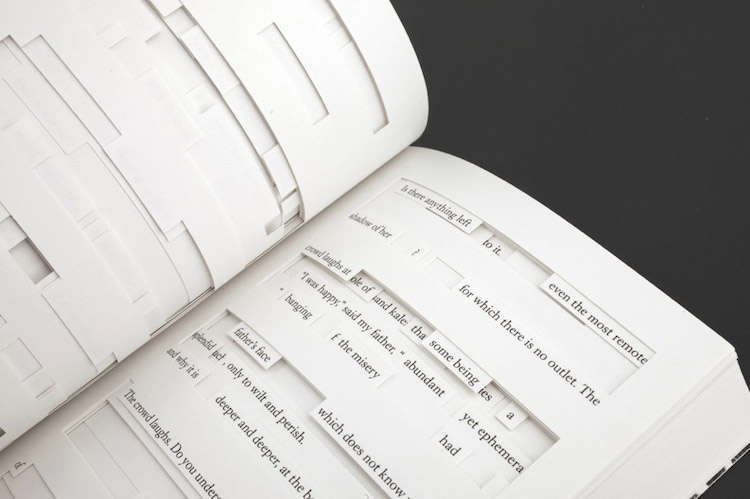 is there anything left
to it.
even the most remote
shadow of her ?
for which there is no outlet. The
crowd laughs at ole of and kale: tha some being es a
"I was happy," said my father, " abundant yet ephemera
" banging f the misery had
father's face
splendid
, only to wilt and perish. which does not know
and why it is deeper and deeper, at the b
The crowd laughs. Do you unders